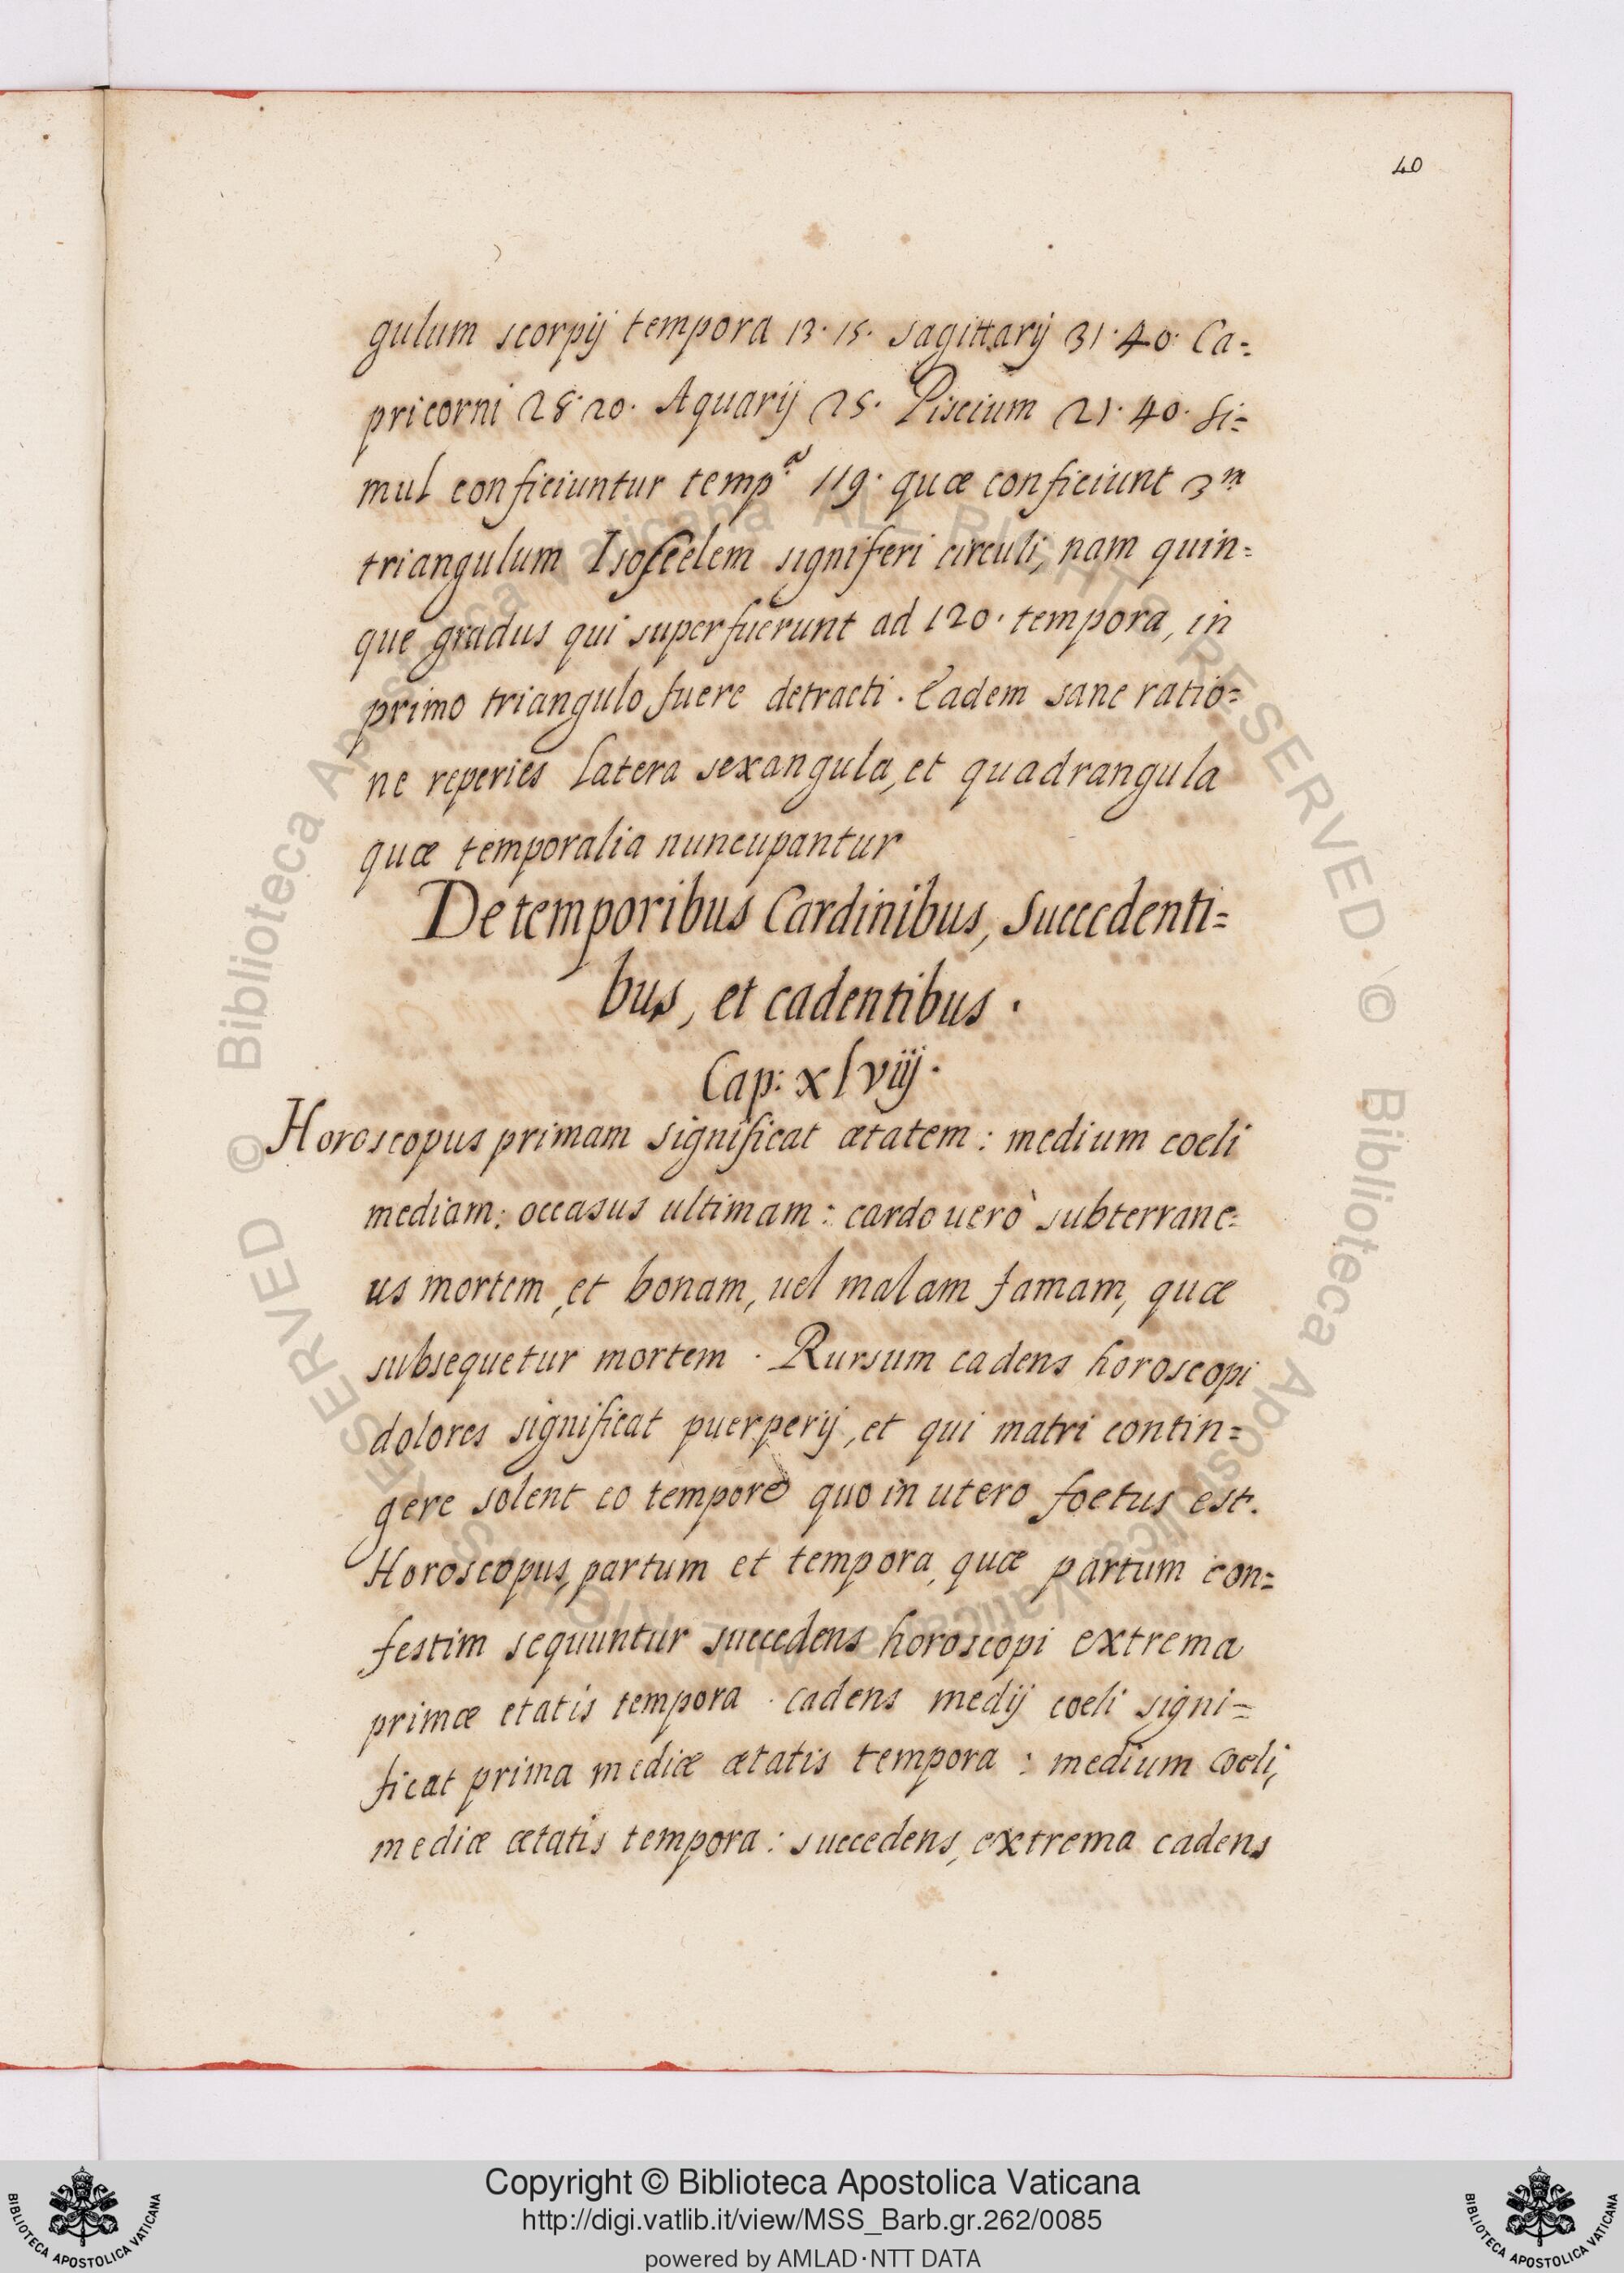 40
gulum scorpij tempora 13. 15. sagittarij 31. 40. Ca=
pricorni 28. 20. Aquarij 25. Piscium 21. 40. si=
mul conficiuntur temp.ª 119. quæ conficiunt 3.m
triangulum Isoscelem signiferi circuli, nam quin=
que gradus qui superfuerunt ad 120. tempora, in
primo triangulo fuere detracti. Eadem sane ratio=
ne reperies latera sexangula, et quadrangula
quæ temporalia nuncupantur
De temporibus Cardinibus, Succedenti=
bus, et cadentibus.
Cap: xlviij.
Horoscopus primam significat ætatem: medium coeli
mediam: occasus ultimam: cardo uerò subterrane=
us mortem, et bonam, uel malam famam, quæ
subsequetur mortem. Rursum cadens horoscopi
dolores significat puerperij, et qui matri contin=
gere solent eo tempore quo in utero foetus est.
Horoscopus, partum et tempora, quæ partum con=
festim sequuntur succedens horoscopi extrema
primæ etatis tempora. cadens medij coeli signi=
ficat prima mediæ ætatis tempora: medium coeli,
mediæ ætatis tempora: succedens, extrema cadens
Copyright © Biblioteca Apostolica Vaticana
http://digi.vatlib.it/view/MSS_Barb.gr.262/0085
powered by AMLAD·NTT DATA
BIBLIOTECA APOSTOLICA VATICANA
BIBLIOTECA APOSTOLICA VATICANA